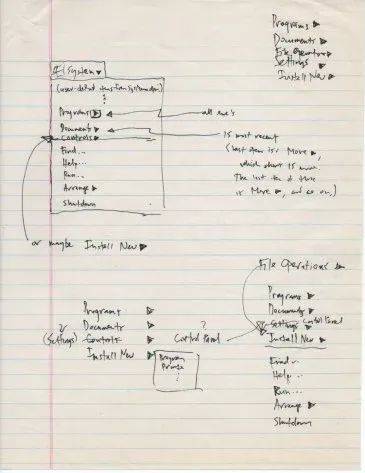 Programs ▶
Documents ▶
File Operations ▶
Settings ▶
Install New ▶
System ▼
(user-defined
?
Programs ▶
all exe's
Documents ▶
15 most recent
Controls ▶
(last item is: More ▶,
which shows 15 more.
The last item of those
is More ▶, and so on.)
Find...
Help...
Run...
Arrange ▶
Shutdown
or maybe Install New ▶
File Operations ▶
Programs ▶
Documents ▶
Settings Control Panel
Install New ▶
Find...
Help...
Run...
Arrange ▶
Shutdown
Programs ▶
?
Documents ▶
?
(Settings) Controls ▶
Control Panel
Install New ▶
Program
?